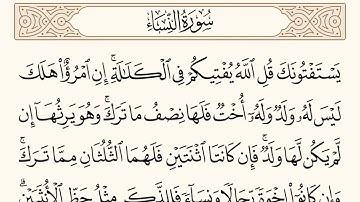 سُورَةُ النِّسَاءِ
يَسْتَفْتُونَكَ قُلِ ٱللَّهُ يُفْتِيكُمْ فِى ٱلْكَلَـٰلَةِ ۚ إِنِ ٱمْرُؤٌا۟ هَلَكَ
لَيْسَ لَهُۥ وَلَدٌ وَلَهُۥٓ أُخْتٌ فَلَهَا نِصْفُ مَا تَرَكَ ۚ وَهُوَ يَرِثُهَآ إِن
لَّمْ يَكُن لَّهَا وَلَدٌ ۚ فَإِن كَانَتَا ٱثْنَتَيْنِ فَلَهُمَا ٱلثُّلُثَانِ مِمَّا تَرَكَ ۚ
وَإِن كَانُوٓا۟ إِخْوَةً رِّجَالًا وَنِسَآءً فَلِلذَّكَرِ مِثْلُ حَظِّ ٱلْأُنثَيَيْنِ ۗ